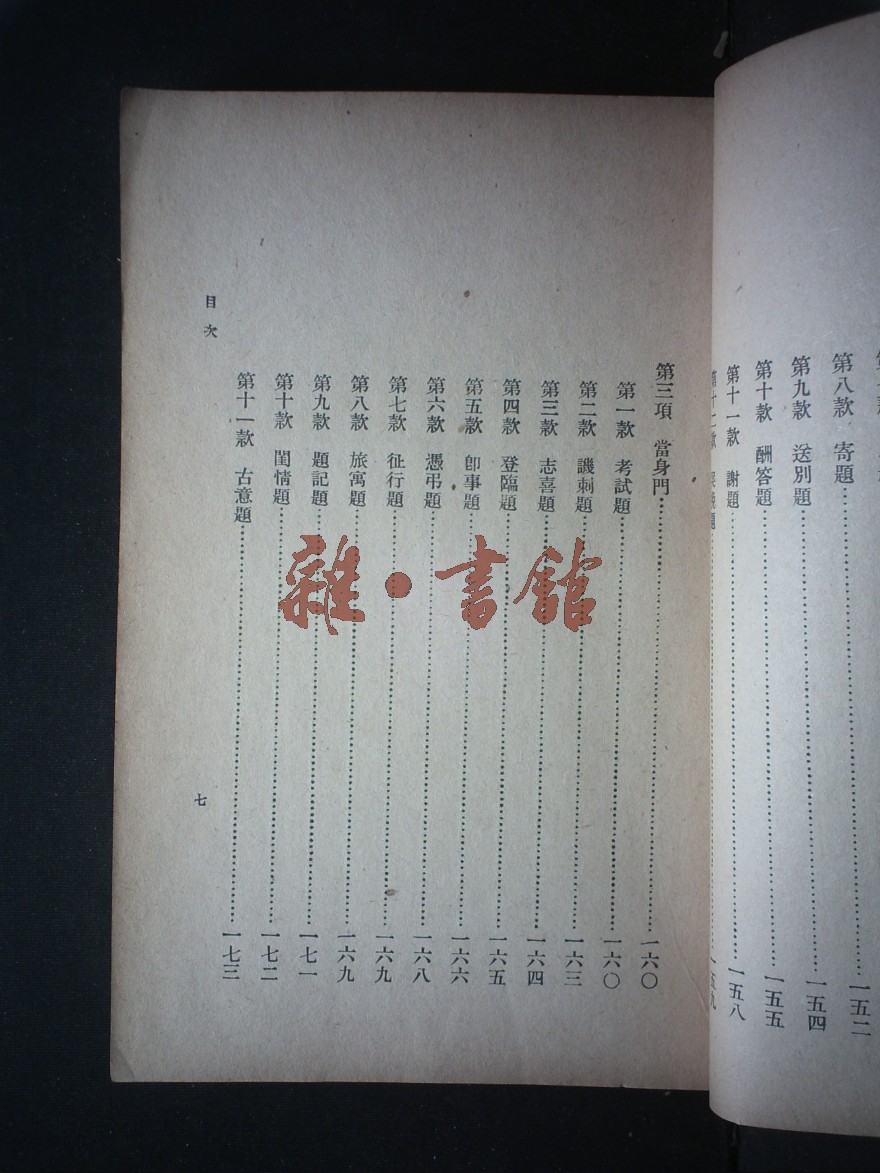 第八款　寄題……一五二
第九款　送別題……一五四
第十款　酬答題……一五五
第十一款　謝題……一五八
第三項　當身門……一六〇
第一款　考試題……一六〇
第二款　譏刺題……一六三
第三款　志喜題……一六四
第四款　登臨題……一六五
第五款　卽事題……一六六
第六款　憑弔題……一六八
第七款　征行題……一六九
第八款　旅寓題……一六九
第九款　題記題……一七一
第十款　閨情題……一七二
第十一款　古意題……一七三
目次
七
雜·書館